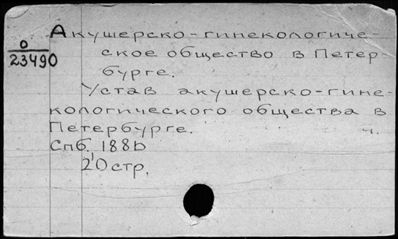 Акушерско-гинекологиче-
ское общество в Петер-
бурге.
О
23490
Устав акушерско-гине-
кологического общества в
Петербурге. ч.
Спб. 1886
20 стр.